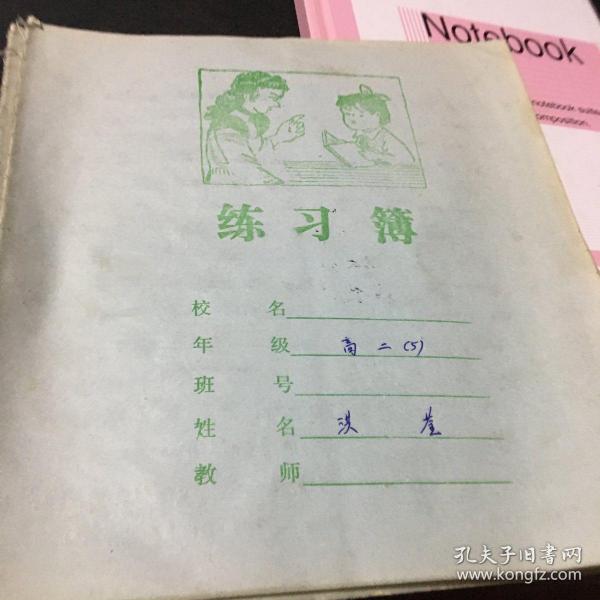 Notebook
notebook suite
composition.
练习簿
校名
年级 高二(5)
班号
姓名 洪
教师
孔夫子旧书网
www.kongfz.com